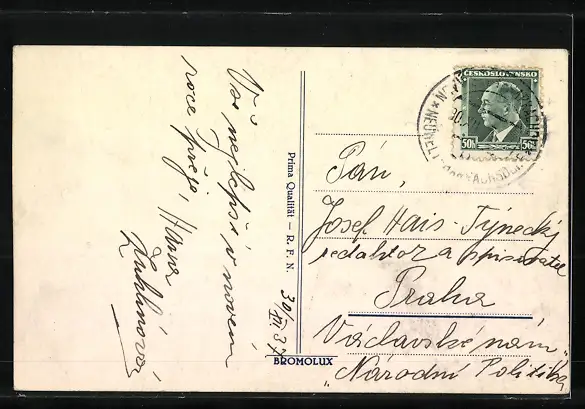 Vše
nejlepší v novém
roce přeje, Hana
30/XII. 37
Prima Qualität — R. F. N.
BROMOLUX
ČESKOSLOVENSKO
50h 50h
Pán,
Josef Hais-Týnecký
redaktor a spisovatel
Praha
Václavské nám
"Národní Politika